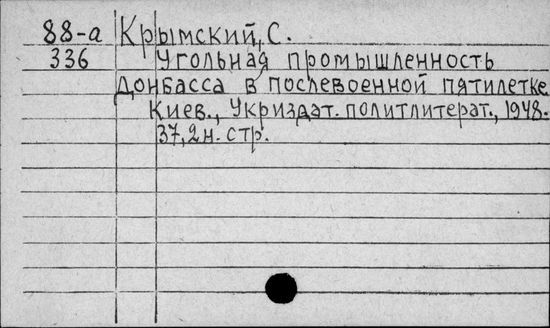 88-а Крымский, С.
336 Угольная промышленность
Донбасса в послевоенной пятилетке
Киев., Укриздат. политлитерат., 1948.
37, 2н. стр.